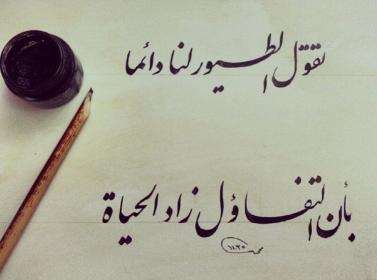 تقول الطيور لنا دائما
بأن التفاؤل زاد الحياة